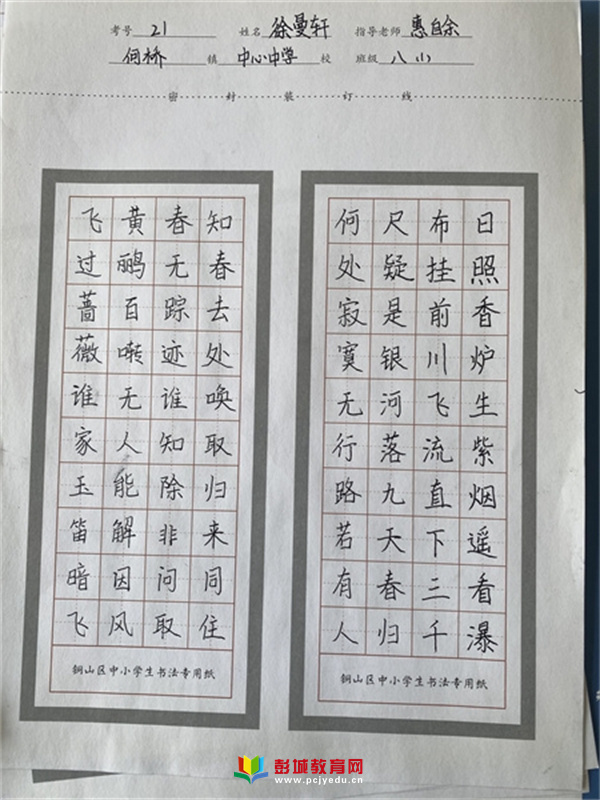 考号 21 姓名 徐曼轩 指导老师 惠自余
何桥 镇 中心中学 校 班级 八
密 封 装 订 线
日照香炉生紫烟遥看瀑
布挂前川飞流直下三千
尺疑是银河落九天春归
何处寂寞无行路若有人
铜山区中小学生书法专用纸
知春去处唤取归来同住
春无踪迹谁知除非问取
黄鹂百啭无人能解因风
飞过蔷薇谁家玉笛暗飞
铜山区中小学生书法专用纸
彭城教育网
www.pcjyedu.cn